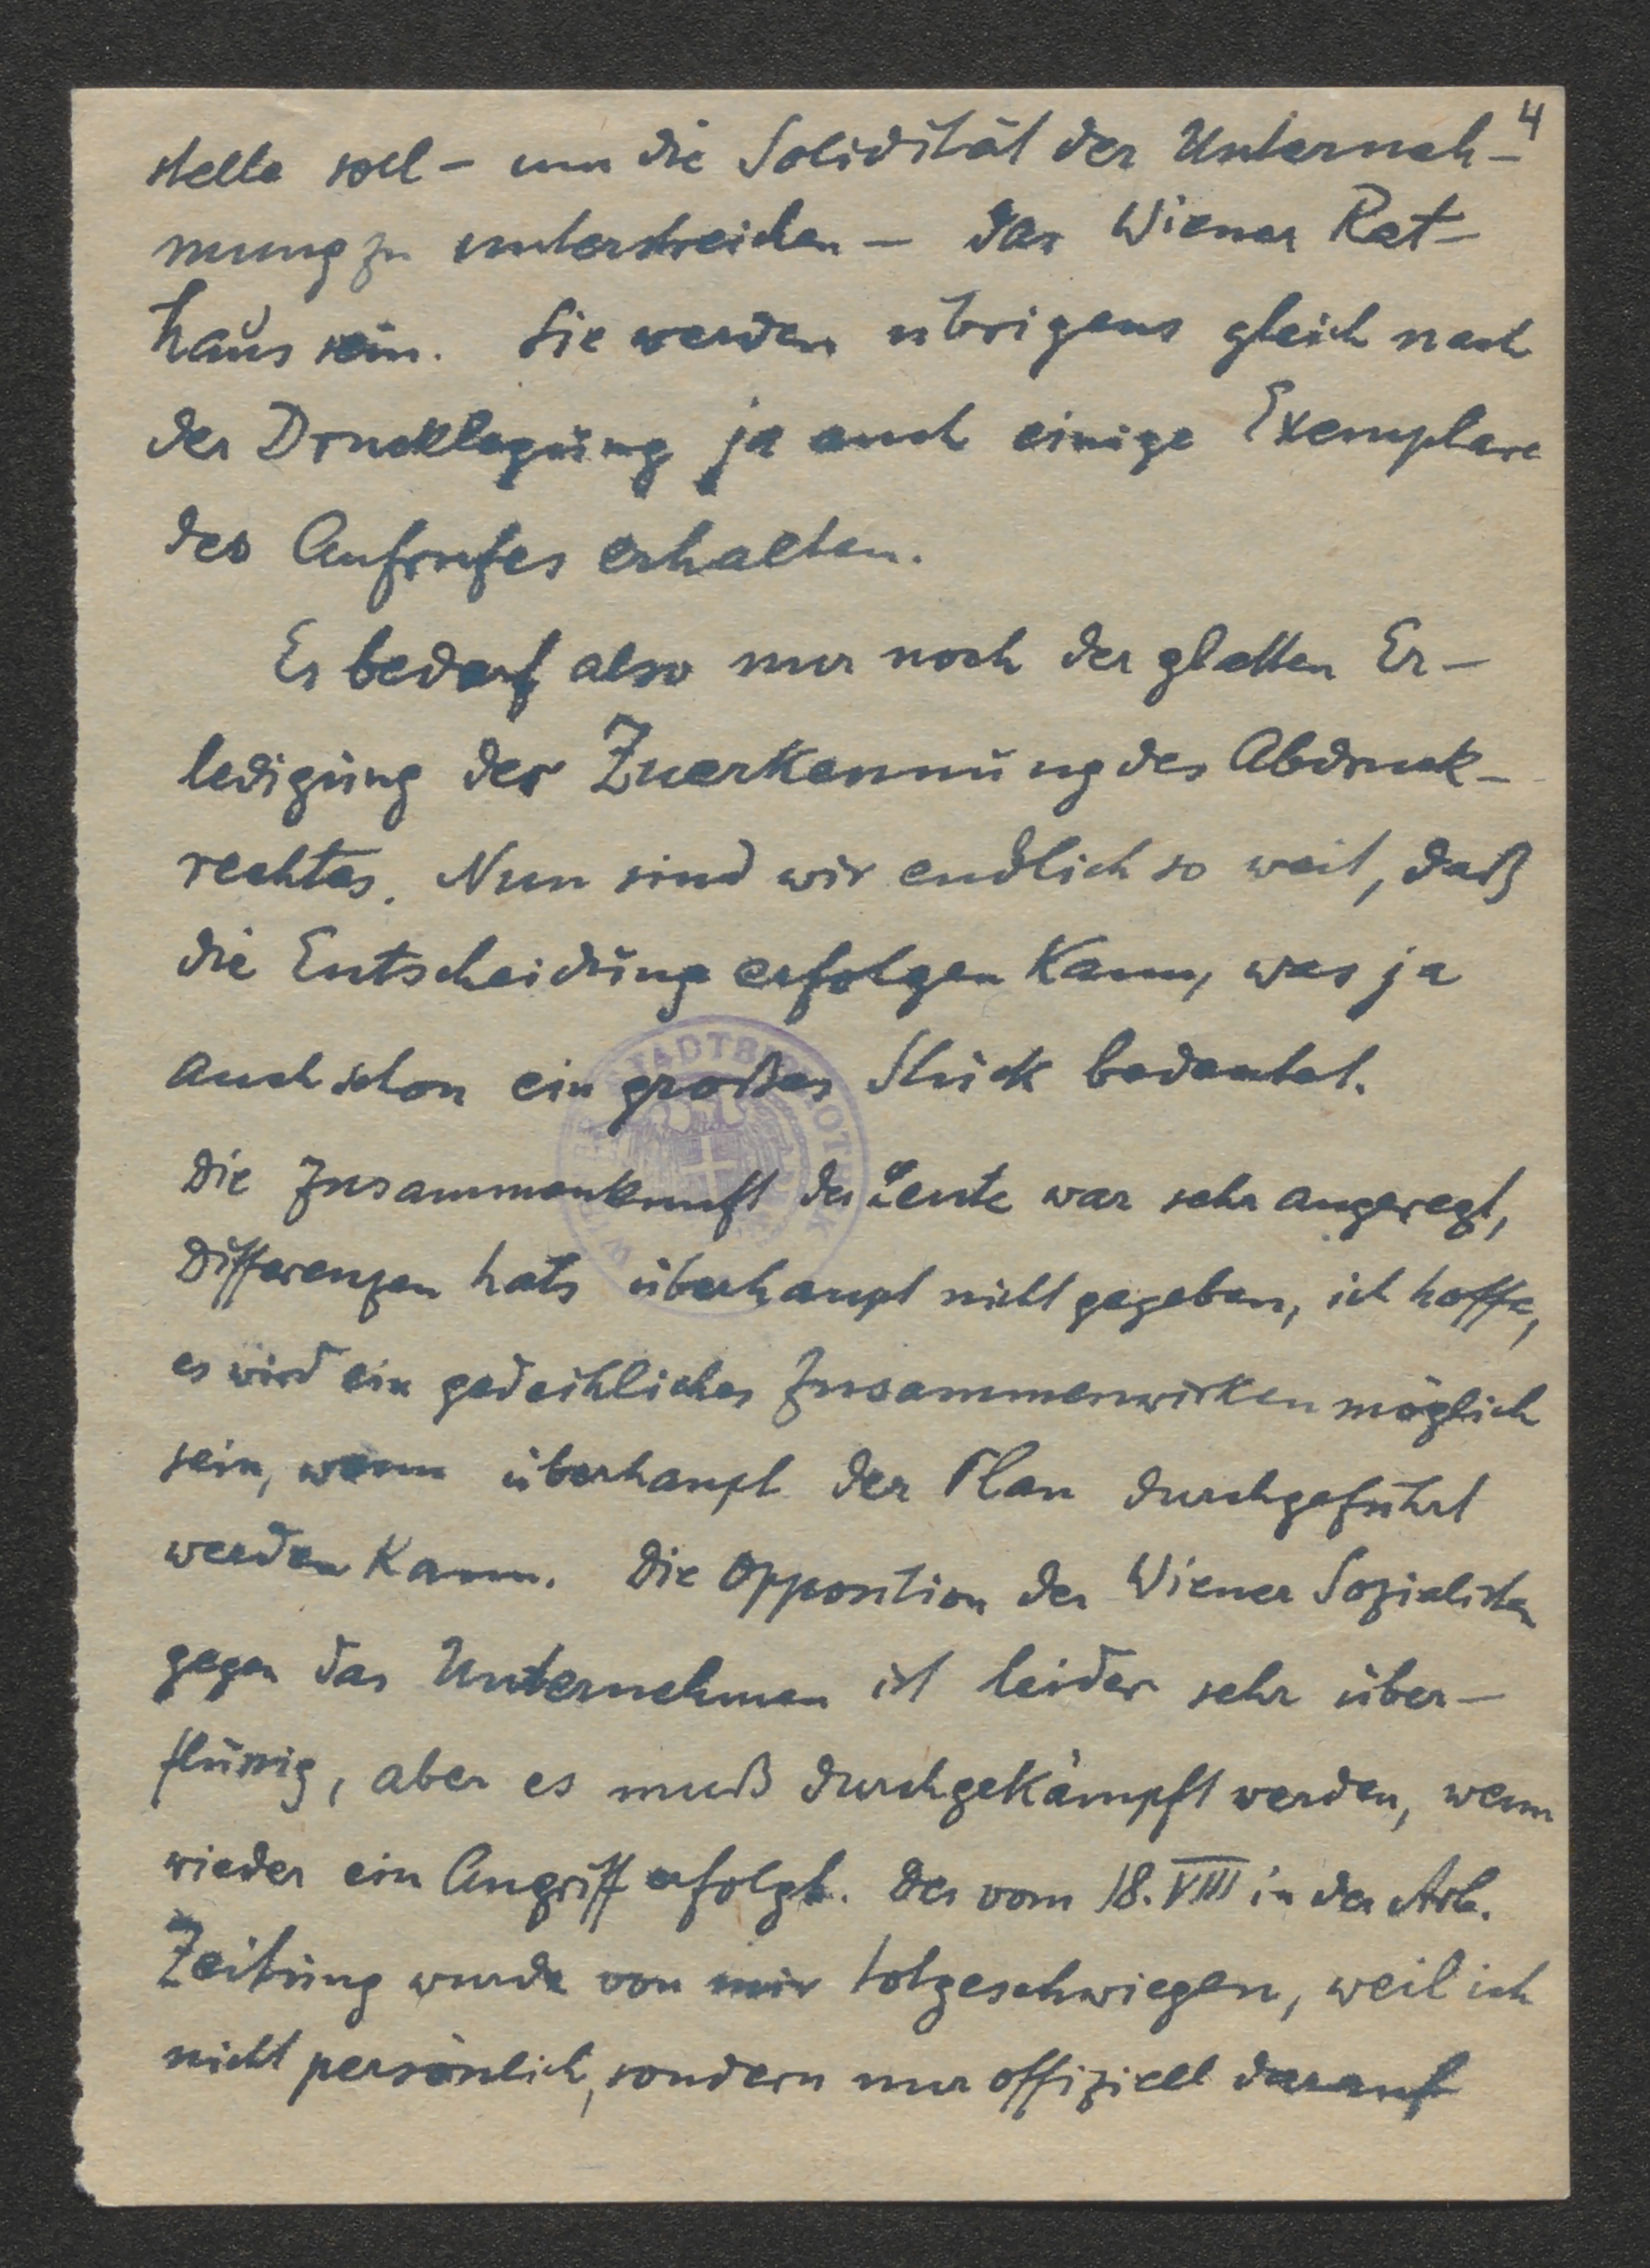 4
stelle soll – um die Solidität der Unterneh-
mung zu unterstreichen – das Wiener Rat-
haus sein. Sie werden übrigens gleich nach
der Drucklegung ja auch einige Exemplare
des Aufrufes erhalten.
Es bedarf also nur noch der glatten Er-
ledigung der Zuerkennung des Abdruck-
rechtes. Nun sind wir endlich so weit, daß
die Entscheidung erfolgen kann, was ja
auch schon ein großes Stück bedeutet.
Die Zusammenkunft der Leute war sehr angeregt,
Differenzen hats überhaupt nicht gegeben, ich hoffe,
es wird ein gedeihliches Zusammenwirken möglich
sein, wenn überhaupt der Plan durchgeführt
werden kann. Die Opposition der Wiener Sozialisten
gegen das Unternehmen ist leider sehr über-
flüssig, aber es muß durchgekämpft werden, wenn
wieder ein Angriff erfolgt. Der vom 18. VIII in der Arb.
Zeitung wurde von mir totgeschwiegen, weil ich
nicht persönlich, sondern nur offiziell darauf